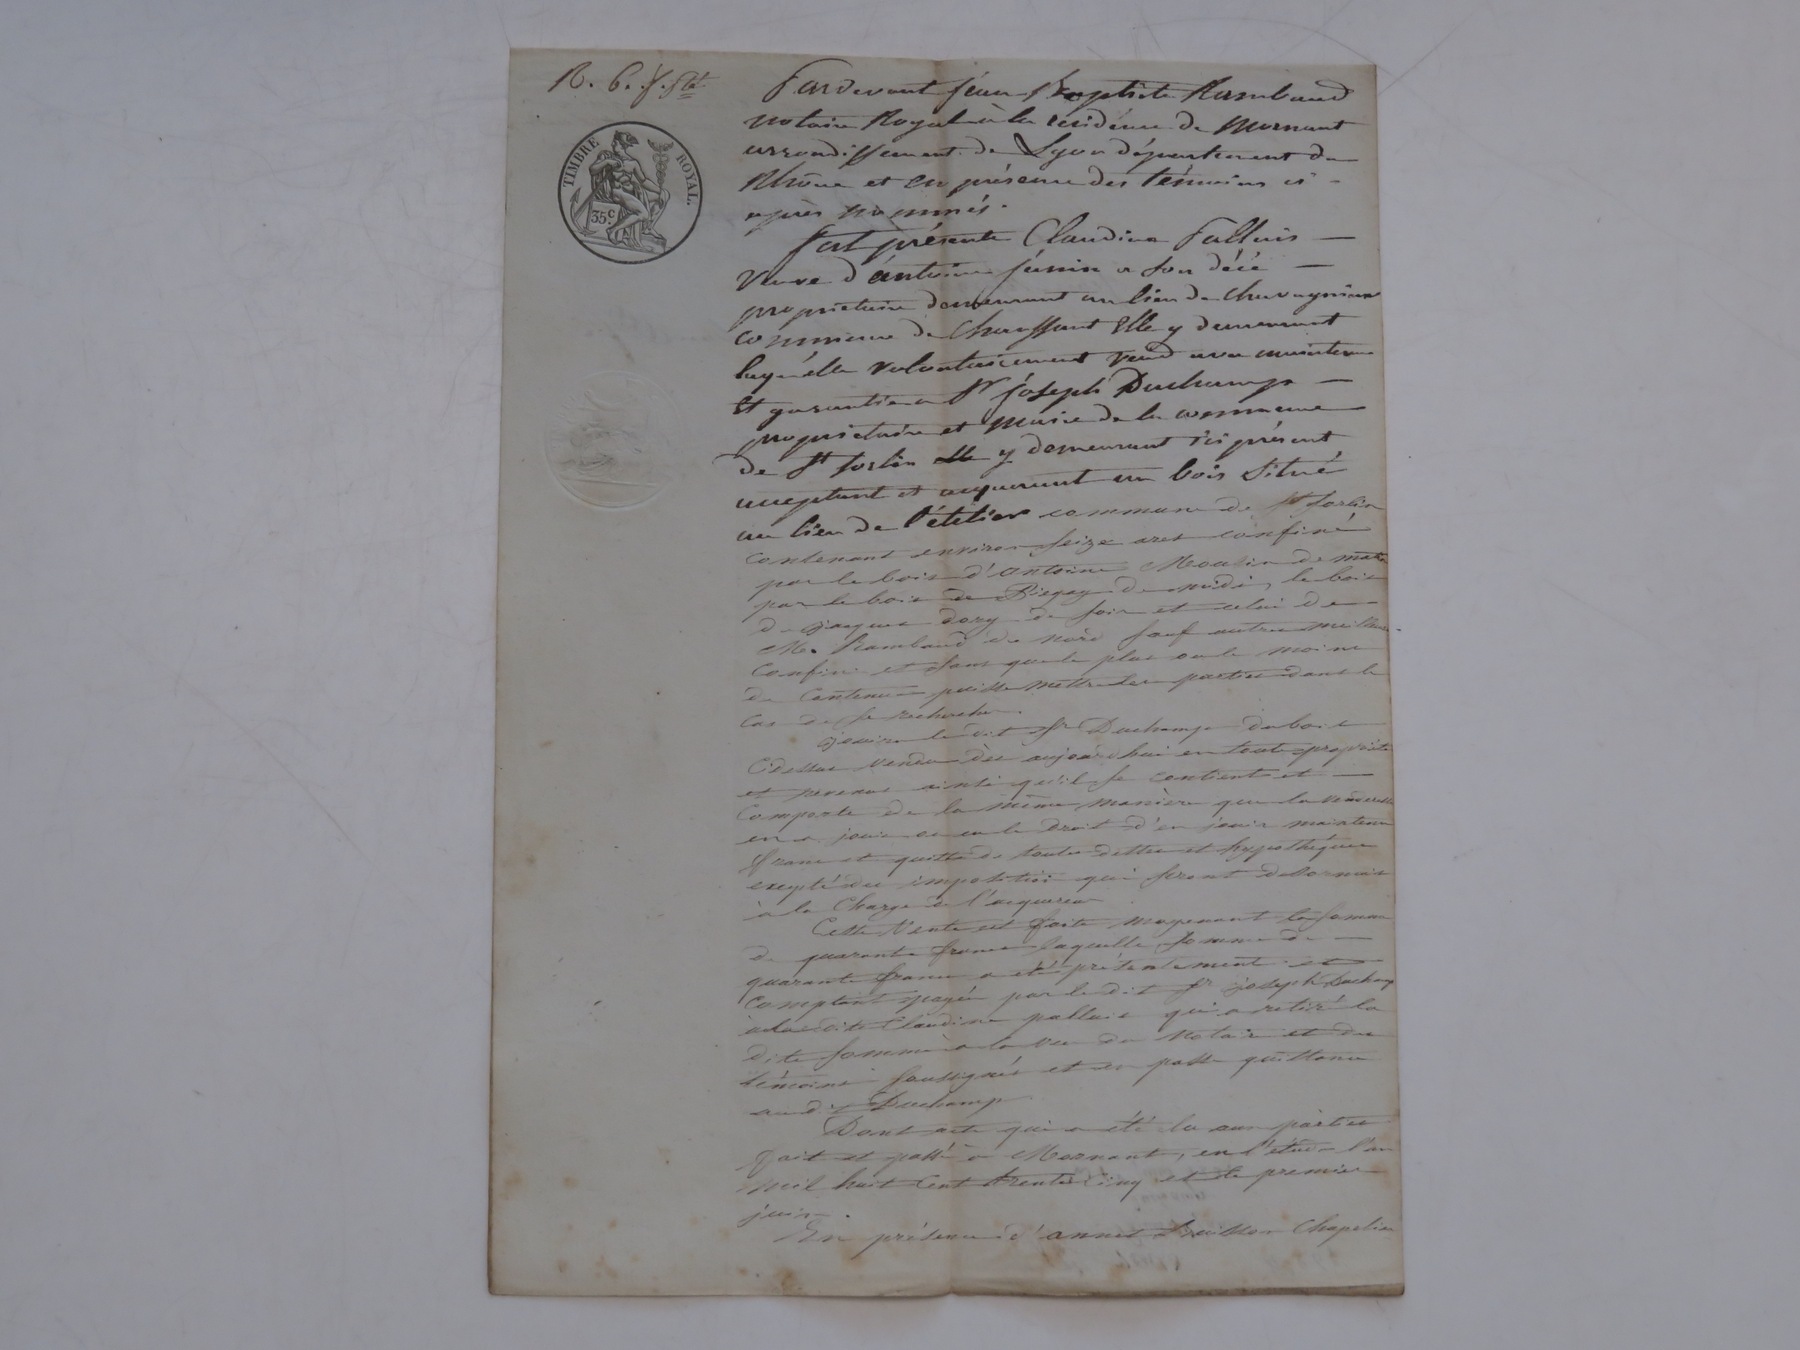 R. 6.
TIMBRE ROYAL.
35c.
Pardevant jean Baptiste Rambaud
Notaire Royal à la residence de Mornant
arrondissement de Lyon département du
Rhône et en présence des témoins ci -
après nommés.
fut présente Claudine Palluis —
Veuve d'antoine jénin a son décé —
propriétaire demeurant au lieu de
commune de Chaussant Elle y demeurant
laquelle volontairement vend avec maintenue
Et garantie a Sr joseph Duchamp —
propriétaire et Maire de la commune
de St Sorlin y demeurant ici présent
acceptant et acquerant un bois Situé
au lieu de l'étélier commune de St Sorlin
Contenant environ Seize ares confiné
par le bois d'antoine Moulin de matin
par le bois de de midi, le bois
de jaques dory de soir et celui de —
Me. Rambaud de nord sauf autres meilleurs
Confins et sans que le plus ou le moins
de Contenue puisse mettre les parties dans le
Cas de se rechercher.
jouira le dit Sr Duchamp du bois
Cidessus Vendu dès aujourd'hui en toute propriété
et revenus ainsi qu'il se contient et —
Comporte de la même manière que la venderesse
en a joui ou eu le Droit d'en jouir maintenu
franc et quitte de toutes dettes et hypothèques
excepté des impositions qui seront désormais
à la Charge de l'acquereur
Cette Vente est faite moyenant la somme
de quarante francs laquelle somme de —
quarante francs a été présentement et
Comptant payée par le dit Sr joseph Duchamp
à la dite Claudine palluis qui a retiré la
dite somme à la vue du Notaire et des
témoins soussignés et en passe quittance
audit Duchamp
Dont acte qui a été lu aux parties
fait et passé à Mornant, en l'étude l'an
Mil huit Cent trente Cinq et le premier
juin.
En présence d'annet Chapelier